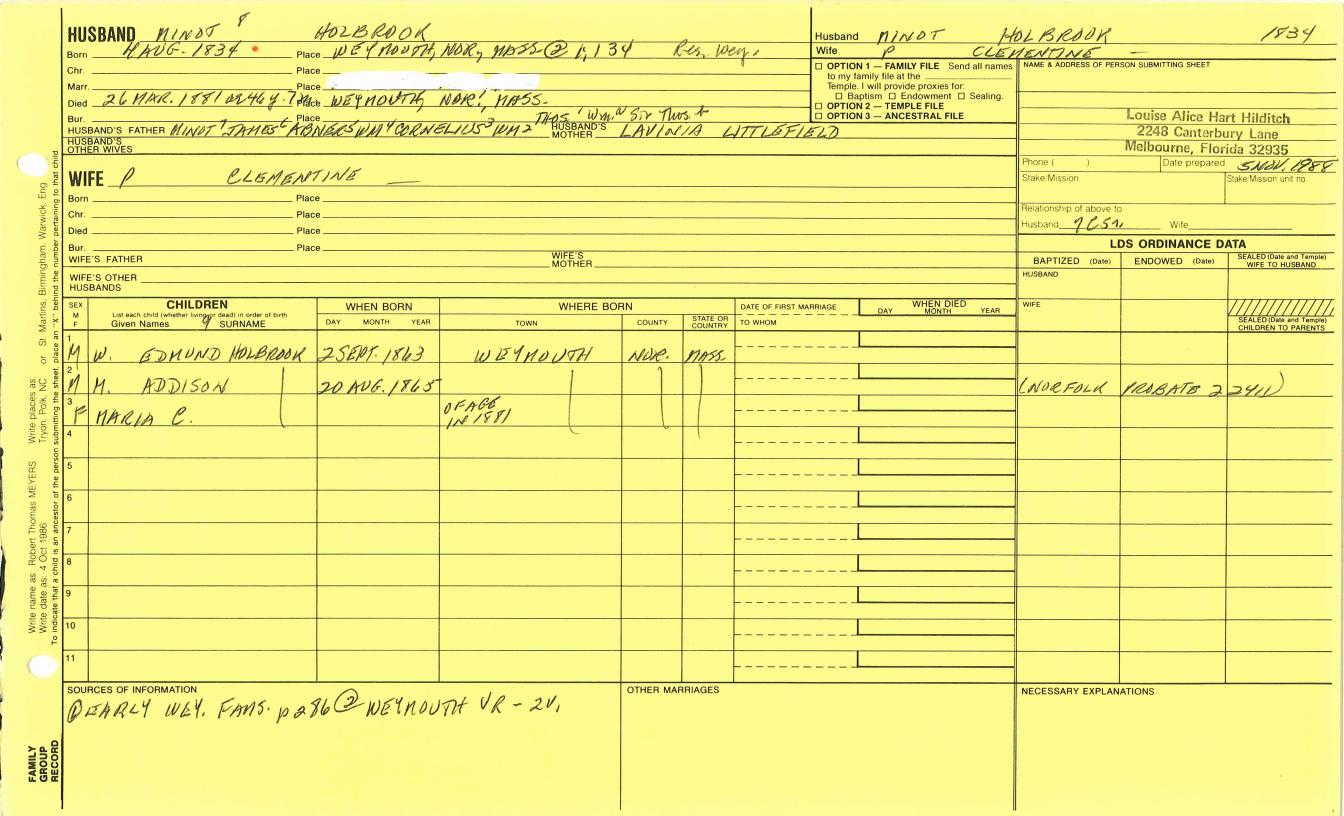 HUSBAND MINOT 8 HOLBROOK
Born 4 AUG. 1834 Place WEYMOUTH, NOR, MASS ② 1,134 Res. Wey.
Chr. Place
Marr. Place
Died 26 MAR. 1881 Place WEYMOUTH, NOR., MASS.
Bur. Place
HUSBAND'S FATHER MINOT 7 JAMES 6 ABNER 5 WM 4 CORNELIUS 3 WM 2 Thos 1 Wm Sir Thos HUSBAND'S MOTHER LAVINIA LITTLEFIELD
HUSBAND'S OTHER WIVES
WIFE P CLEMENTINE —
Born Place
Chr. Place
Died Place
Bur. Place
WIFE'S FATHER WIFE'S MOTHER
WIFE'S OTHER HUSBANDS
Husband MINOT HOLBROOK 1834
Wife P CLEMENTINE —
☐ OPTION 1 — FAMILY FILE Send all names
to my family file at the
Temple. I will provide proxies for:
☐ Baptism ☐ Endowment ☐ Sealing.
☐ OPTION 2 — TEMPLE FILE
☐ OPTION 3 — ANCESTRAL FILE
NAME & ADDRESS OF PERSON SUBMITTING SHEET
Louise Alice Hart Hilditch
2248 Canterbury Lane
Melbourne, Florida 32935
Phone ( ) Date prepared 5 NOV. 1988
Stake Mission Stake Mission unit no.
Relationship of above to
Husband Wife
LDS ORDINANCE DATA
BAPTIZED (Date) ENDOWED (Date) SEALED (Date and Temple) WIFE TO HUSBAND
HUSBAND
WIFE
SEALED (Date and Temple) CHILDREN TO PARENTS
SEX M F
CHILDREN
List each child (whether living or dead) in order of birth
Given Names 9 SURNAME
WHEN BORN
DAY MONTH YEAR
WHERE BORN
TOWN COUNTY STATE OR COUNTRY
DATE OF FIRST MARRIAGE
TO WHOM
WHEN DIED
DAY MONTH YEAR
1 M W. EDMUND HOLBROOK 2 SEPT. 1863 WEYMOUTH NOR. MASS.
2 M M. ADDISON 20 AUG. 1865 (NORFOLK PROBATE 22411)
3 F MARIA C. OF AGE IN 1881
4
5
6
7
8
9
10
11
SOURCES OF INFORMATION
① EARLY WEY. FAMS. p 286 ② WEYMOUTH VR - 2V.
OTHER MARRIAGES
NECESSARY EXPLANATIONS
Write name as: Robert Thomas MEYERS Write places as: Tryon, Polk, NC or St. Martins, Birmingham, Warwick, Eng
Write date as: 4 Oct 1986
To indicate that a child is an ancestor of the person submitting the sheet, place an "X" behind the number pertaining to that child.
FAMILY
GROUP
RECORD